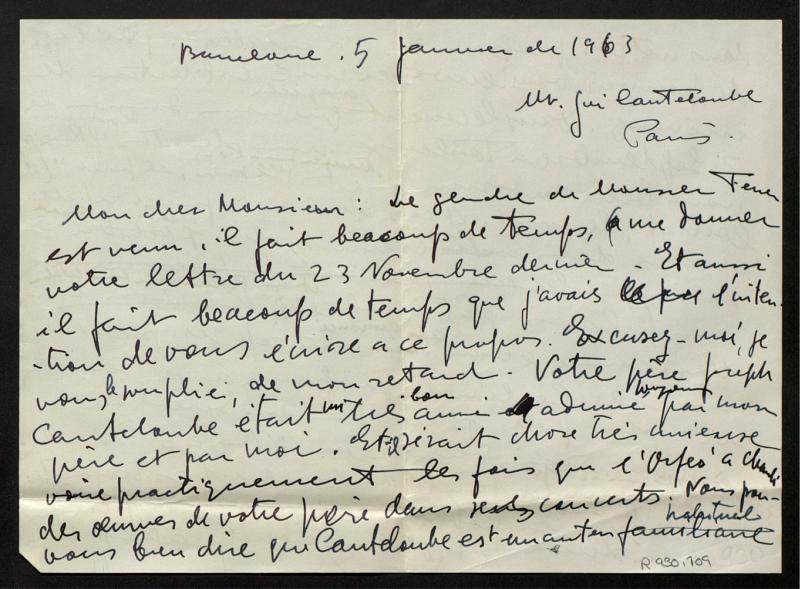 Barcelone. 5 janvier de 1963
Mr. Gui Canteloube
Paris.
Mon cher Monsieur: Le gendre de Monsier Ferrer
est venu, il fait beaucoup de temps, a me donner
votre lettre du 23 Novembre dernièr. Et aussi
il fait beaucoup de temps que j'avais l'inten-
-tion de vous écrire a ce propos. Excusez-moi, je
vous le supplie, de mon retard. Votre père Joseph
Canteloube était un très bon ami admiré toujours par mon
père et par moi. Et serait chose très curieuse
voire practiquement les fois que l'Orfeó a chanté
des œuvres de votre père dans concerts. Nous pou-
vons bien dire que Canteloube est un auteur habituel
R 930.709